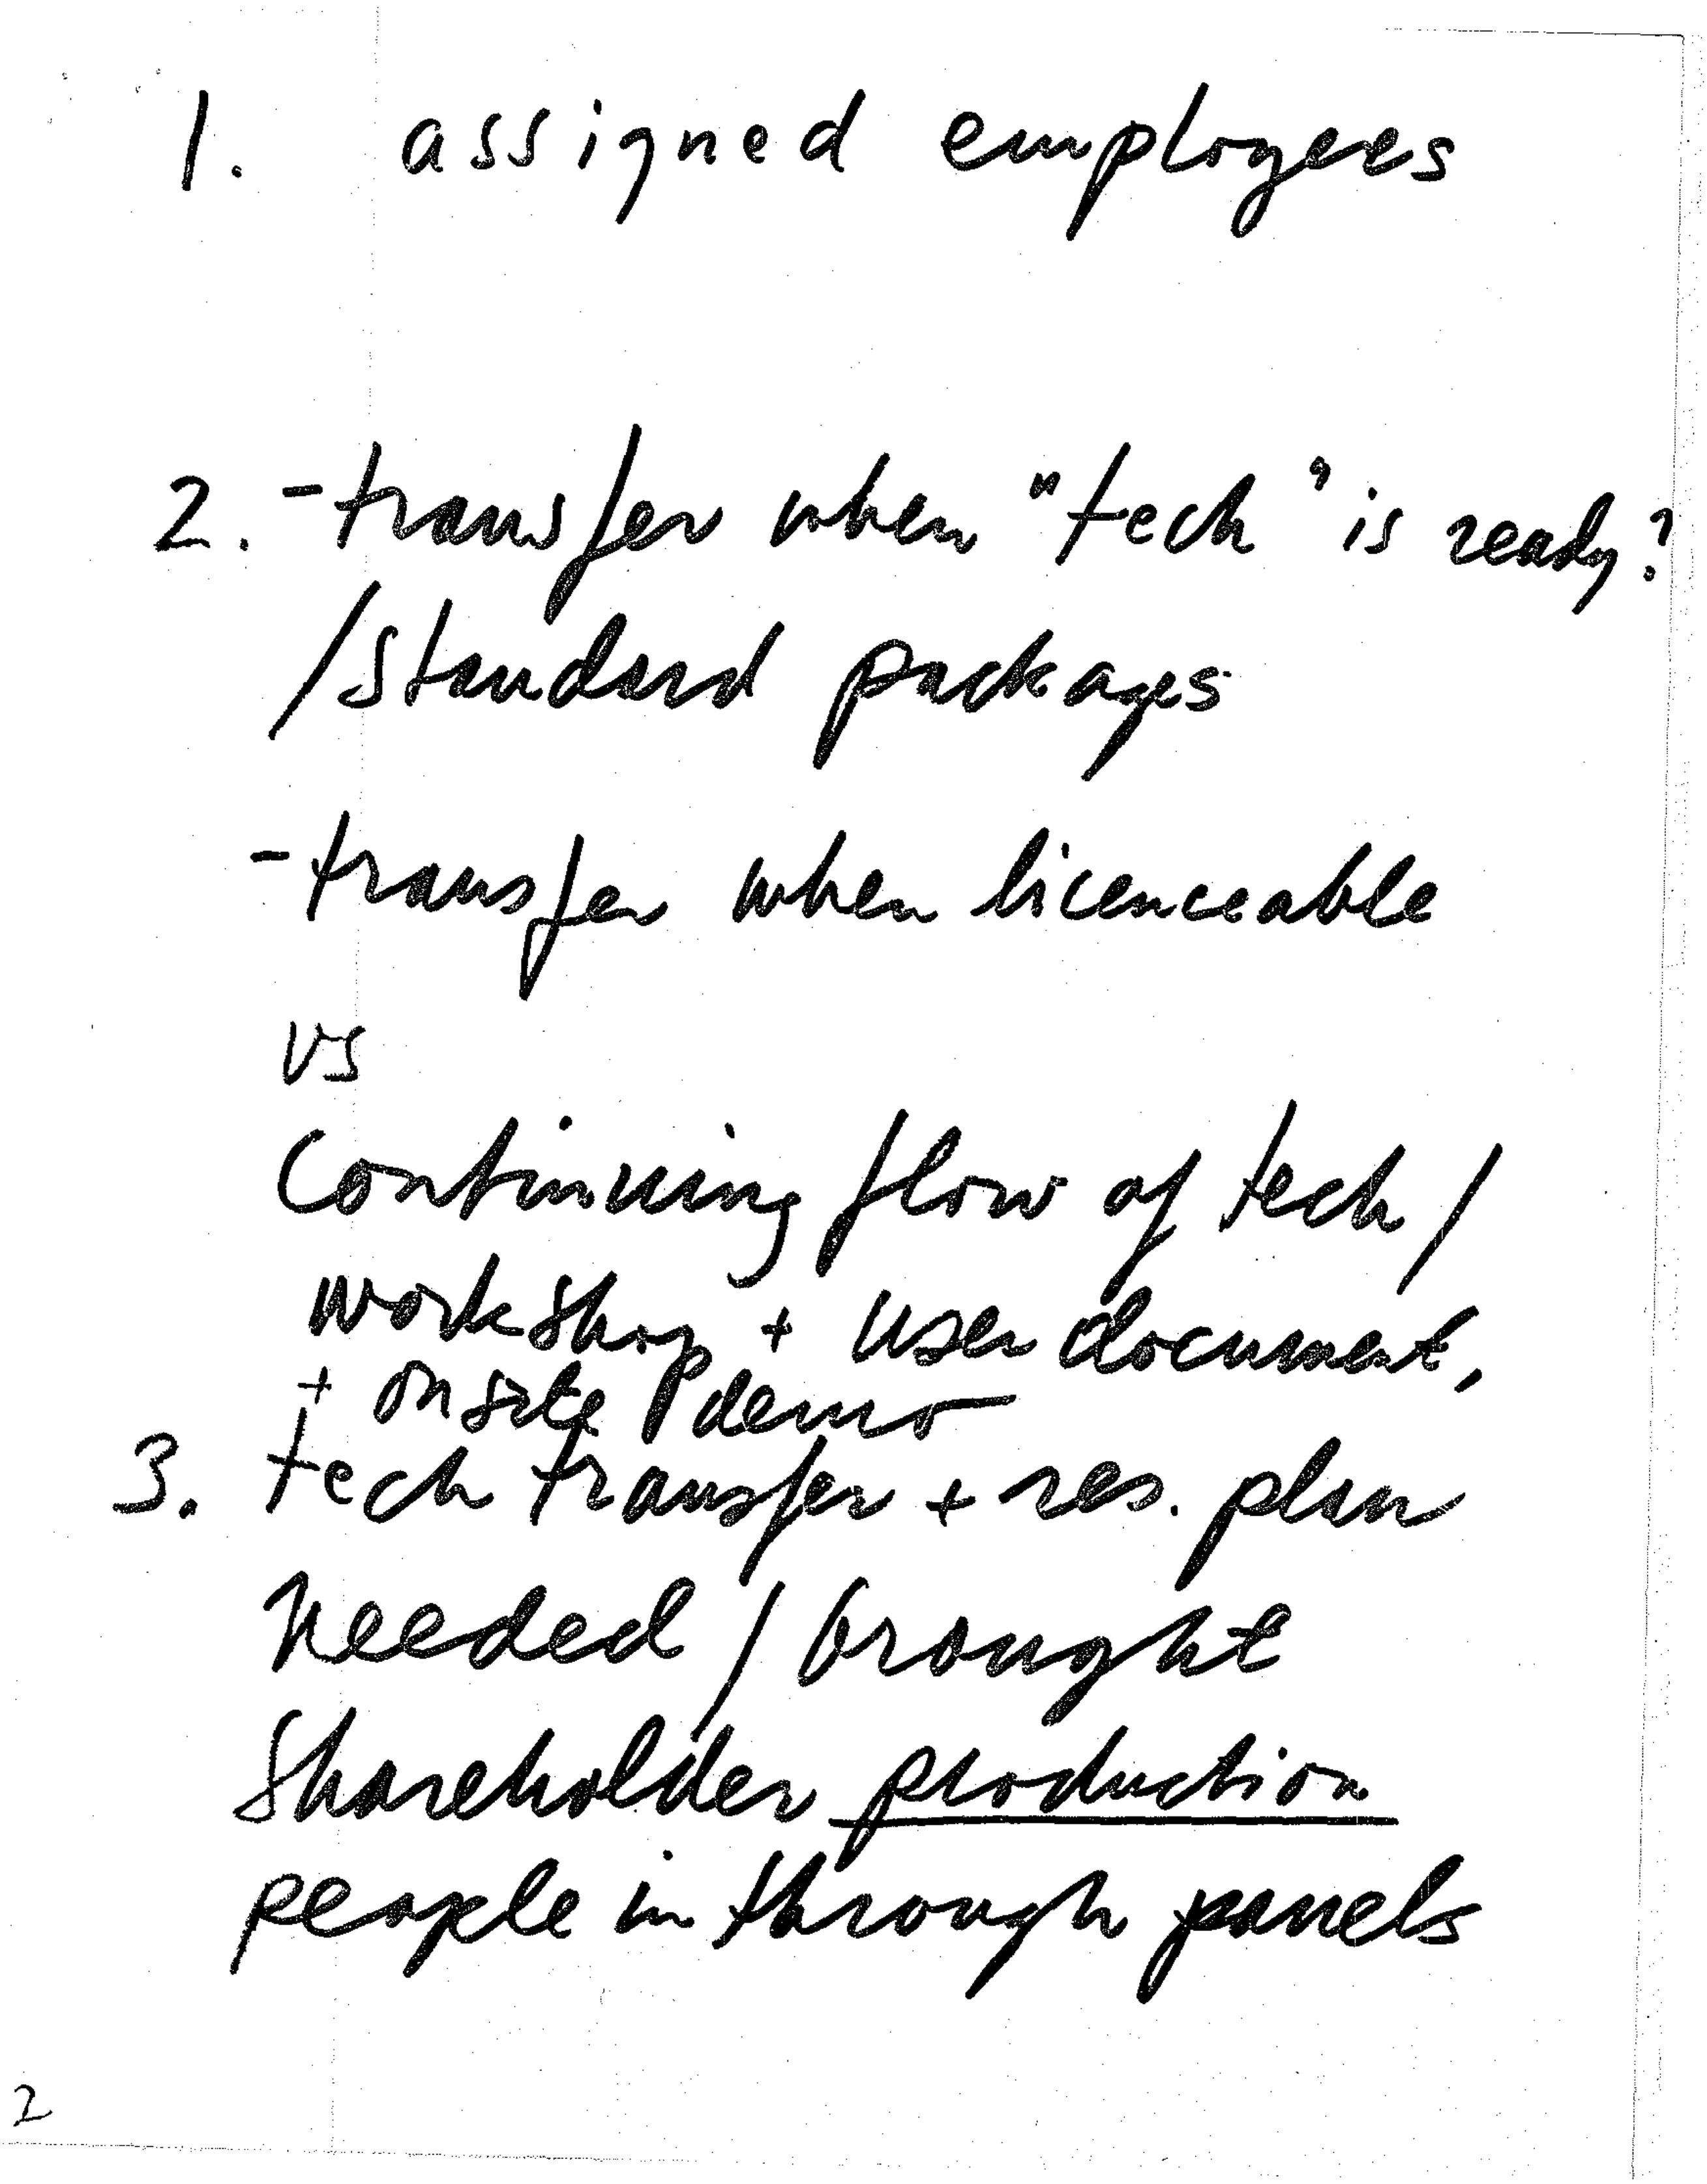 1. assigned employees
2. -transfer when "tech" is ready?
/standard packages
-transfer when licenceable
vs
Continuing flow of tech/
workshop + user document,
+ onsite demo
3. tech transfer + res. plan
needed / brought
shareholder production
people in through panels
2